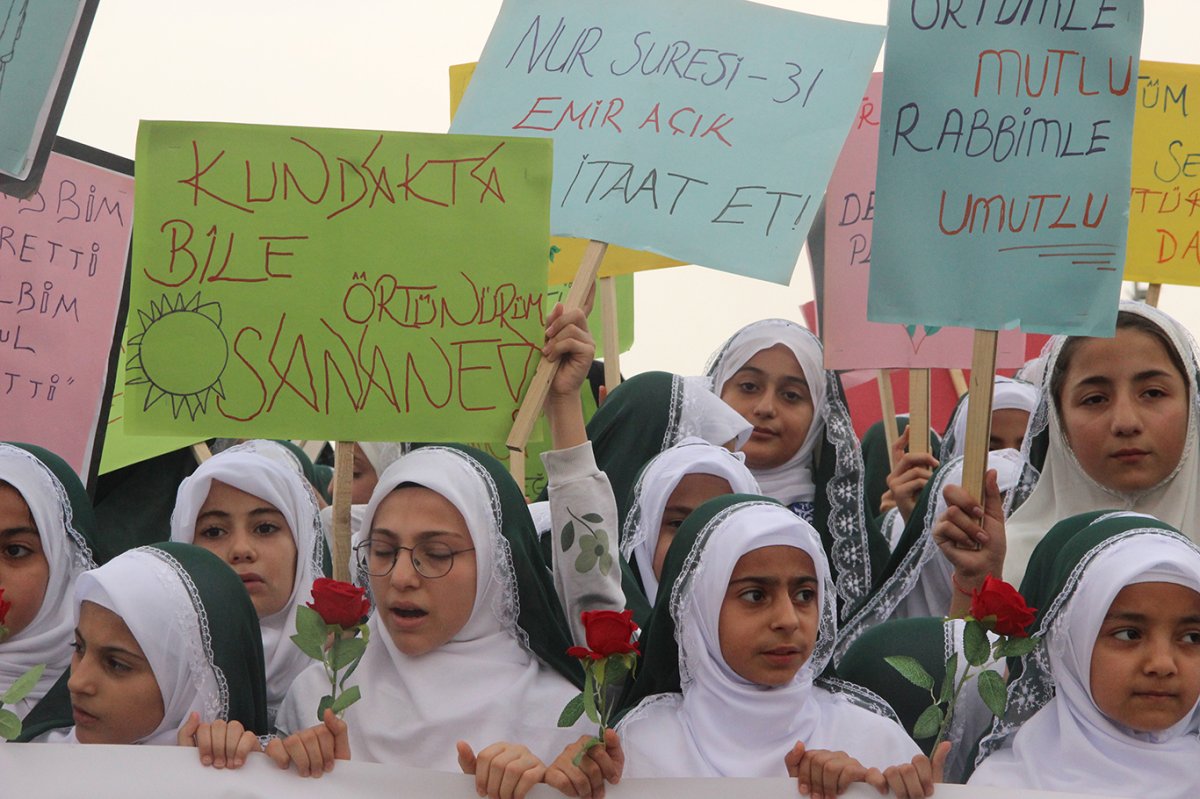 BİM
RETTİ
LBİM
UL
ETTİ"
KUNDAKTA
BİLE
ÖRTÜNÜRÜM
SANANE!
NUR SURESİ-31
EMİR AÇIK
İTAAT ET!
ÖRTÜMLE
MUTLU
RABBİMLE
UMUTLU
TÜM
SE
DA